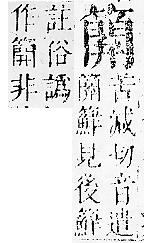 苦減切音遣
鮮見後鮮
註俗譌
作非